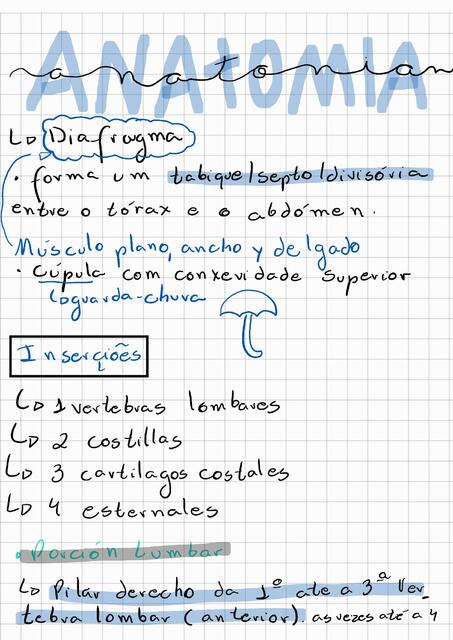 ANATOMIA
anatomian
↳ Diafragma
• forma um tabique/septo/divisória
entre o tórax e o abdómen.
Músculo plano, ancho y delgado
• Cúpula com conxevidade superior
↳guarda-chuva
Inserções
↳ 1 vertebras lombares
↳ 2 costillas
↳ 3 cartilagos costales
↳ 4 esternales
• Porción Lumbar
↳ Pilar derecho da 1º ate a 3ª Ver_
tebra lombar (anterior). as vezes até a 4